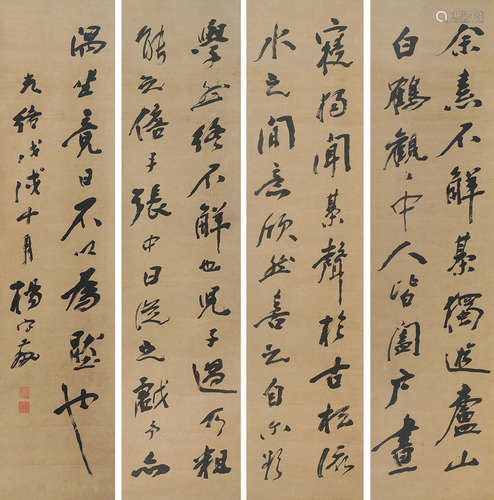 余素不解棊獨遊廬山
白鶴觀〻中人皆闔户晝
寢獨聞棊聲於古松流
水之間意欣然喜之自尔欲
學然終不解也兒子過乃粗
能之儋守張中日從之戲予亦
隅坐竟日不以為厭也
光緒戊戌十月 楊守敬